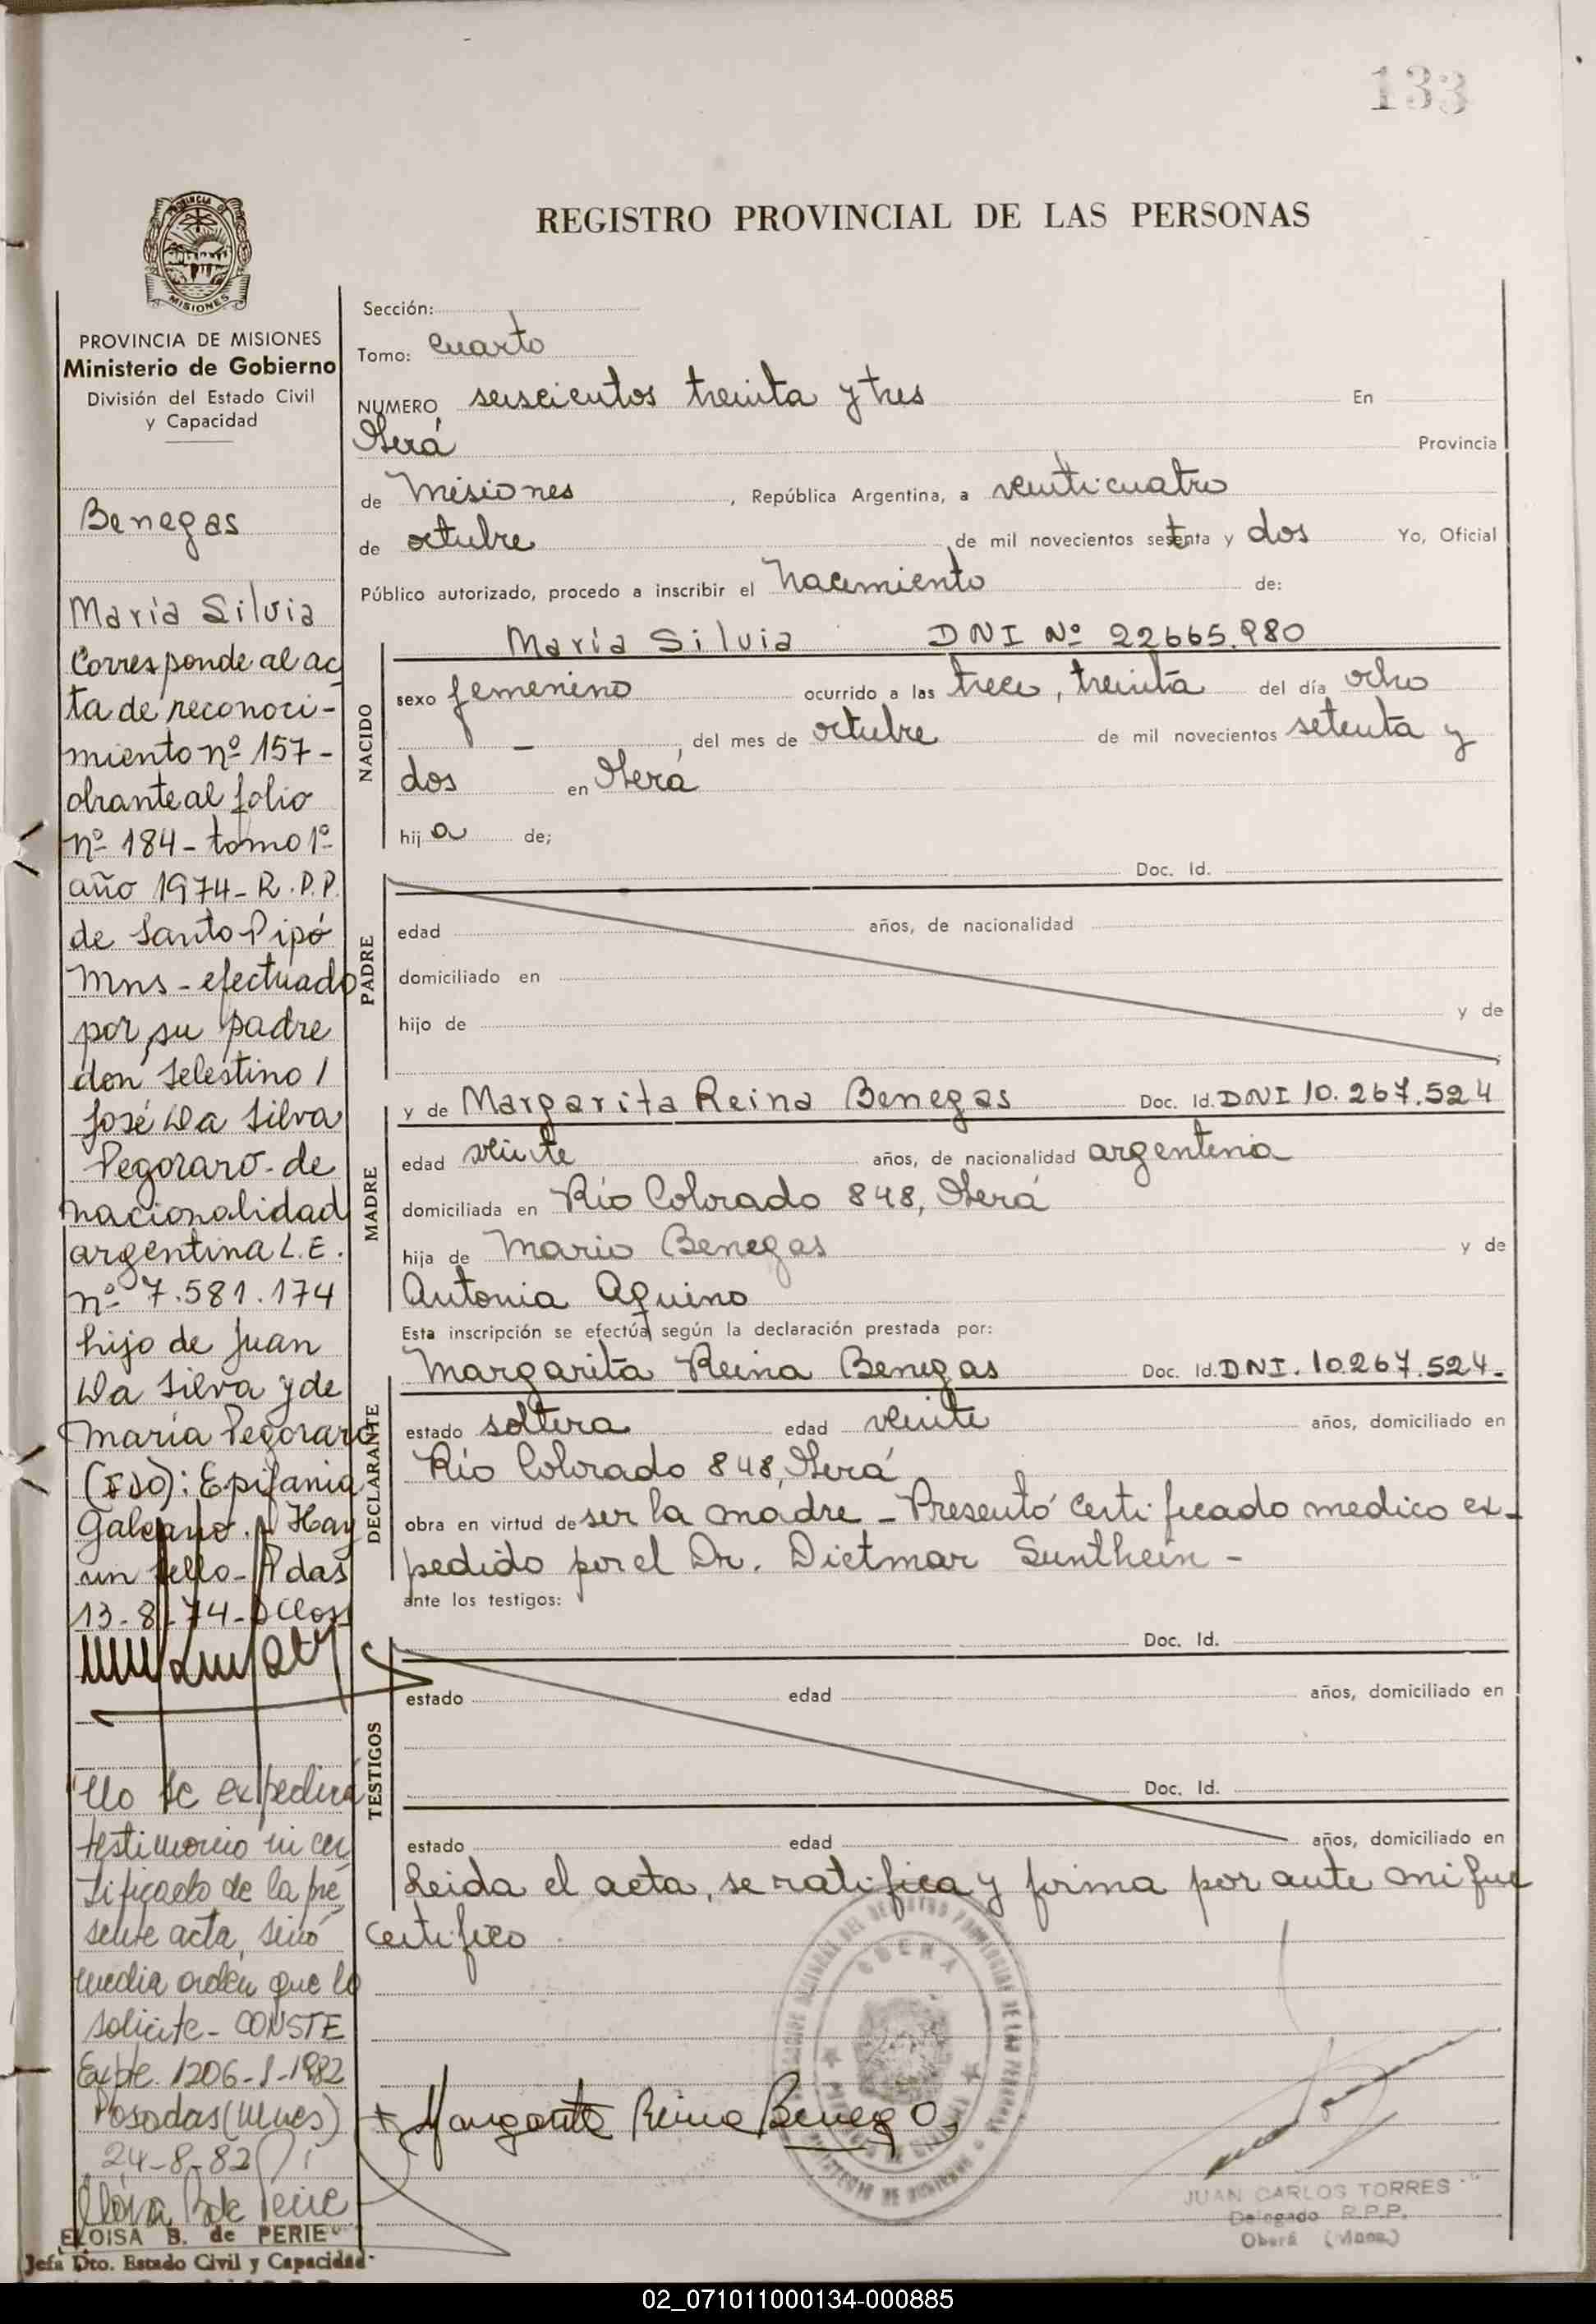 133
REGISTRO PROVINCIAL DE LAS PERSONAS
PROVINCIA DE MISIONES
MISIONES
PROVINCIA DE MISIONES
Ministerio de Gobierno
División del Estado Civil
y Capacidad
Benegas
María Silvia
Corresponde al ac
ta de reconoci-
miento nº 157-
obrante al folio
nº 184 - tomo 1º
año 1974 - R.P.P.
de Santo Pipó
Mns - efectuado
por su padre
don Selestino /
José Da Silva
Pegoraro - de
nacionalidad
argentina L.E.
nº 7.581.174
hijo de Juan
Da Silva y de
María Pegoraro
(FDO): Epifania
Galeano. Hay
un sello - Pdas
13-8-74 -
"No se expedirá
testimonio ni cer
tificado de la pre
sente acta, sinó
media orden que lo
solicite - CONSTE
Expte. 1206-J-1982
Posadas (Mnes)
24-8-82
ELOISA B. de PERIE
Jefa Dto. Estado Civil y Capacidad
Sección:
Tomo: Cuarto
NUMERO seiscientos treinta y tres En
Oberá Provincia
de Misiones , República Argentina, a veinticuatro
de octubre de mil novecientos setenta y dos Yo, Oficial
Público autorizado, procedo a inscribir el Nacimiento de:
NACIDO
María Silvia DNI Nº 22665.980
sexo femenino ocurrido a las trece, treinta del día ocho
- , del mes de octubre de mil novecientos setenta y
dos en Oberá
hij a de;
PADRE
Doc. Id.
edad años, de nacionalidad
domiciliado en
hijo de y de
MADRE
y de Margarita Reina Benegas Doc. Id. DNI 10.267.524
edad veinte años, de nacionalidad argentina
domiciliada en Río Colorado 848, Oberá
hija de Mario Benegas y de
Antonia Aquino
Esta inscripción se efectúa según la declaración prestada por:
DECLARANTE
Margarita Reina Benegas Doc. Id. DNI. 10.267.524-
estado soltera edad veinte años, domiciliado en
Río Colorado 848, Oberá
obra en virtud de ser la madre - Presentó certificado medico ex-
pedido por el Dr. Dietmar Sunthein -
ante los testigos:
TESTIGOS
Doc. Id.
estado edad años, domiciliado en
Doc. Id.
estado edad años, domiciliado en
Leida el acta, se ratifica y firma por ante mi que
certifico
OBERA
Margarita Reina Benegas
JUAN CARLOS TORRES
Delegado R.P.P.
Oberá (Mnes.)
02_071011000134-000885